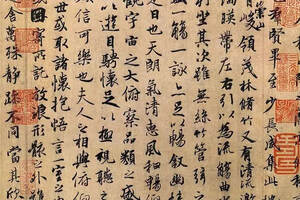 賢畢至少長咸集此
崇山
領茂林脩竹又有清流
湍暎帶左右引以為流觴曲
坐其次雖無絲竹管弦
觴一詠亦足以暢敘幽
日也天朗氣清惠風和暢
觀宇宙之大俯察品類之
以遊目騁懷足以極
信可樂也夫人之相與俯
世或取諸懷抱悟言一室之
因寄所託放浪形骸之外
舍萬殊靜躁不同當其欣